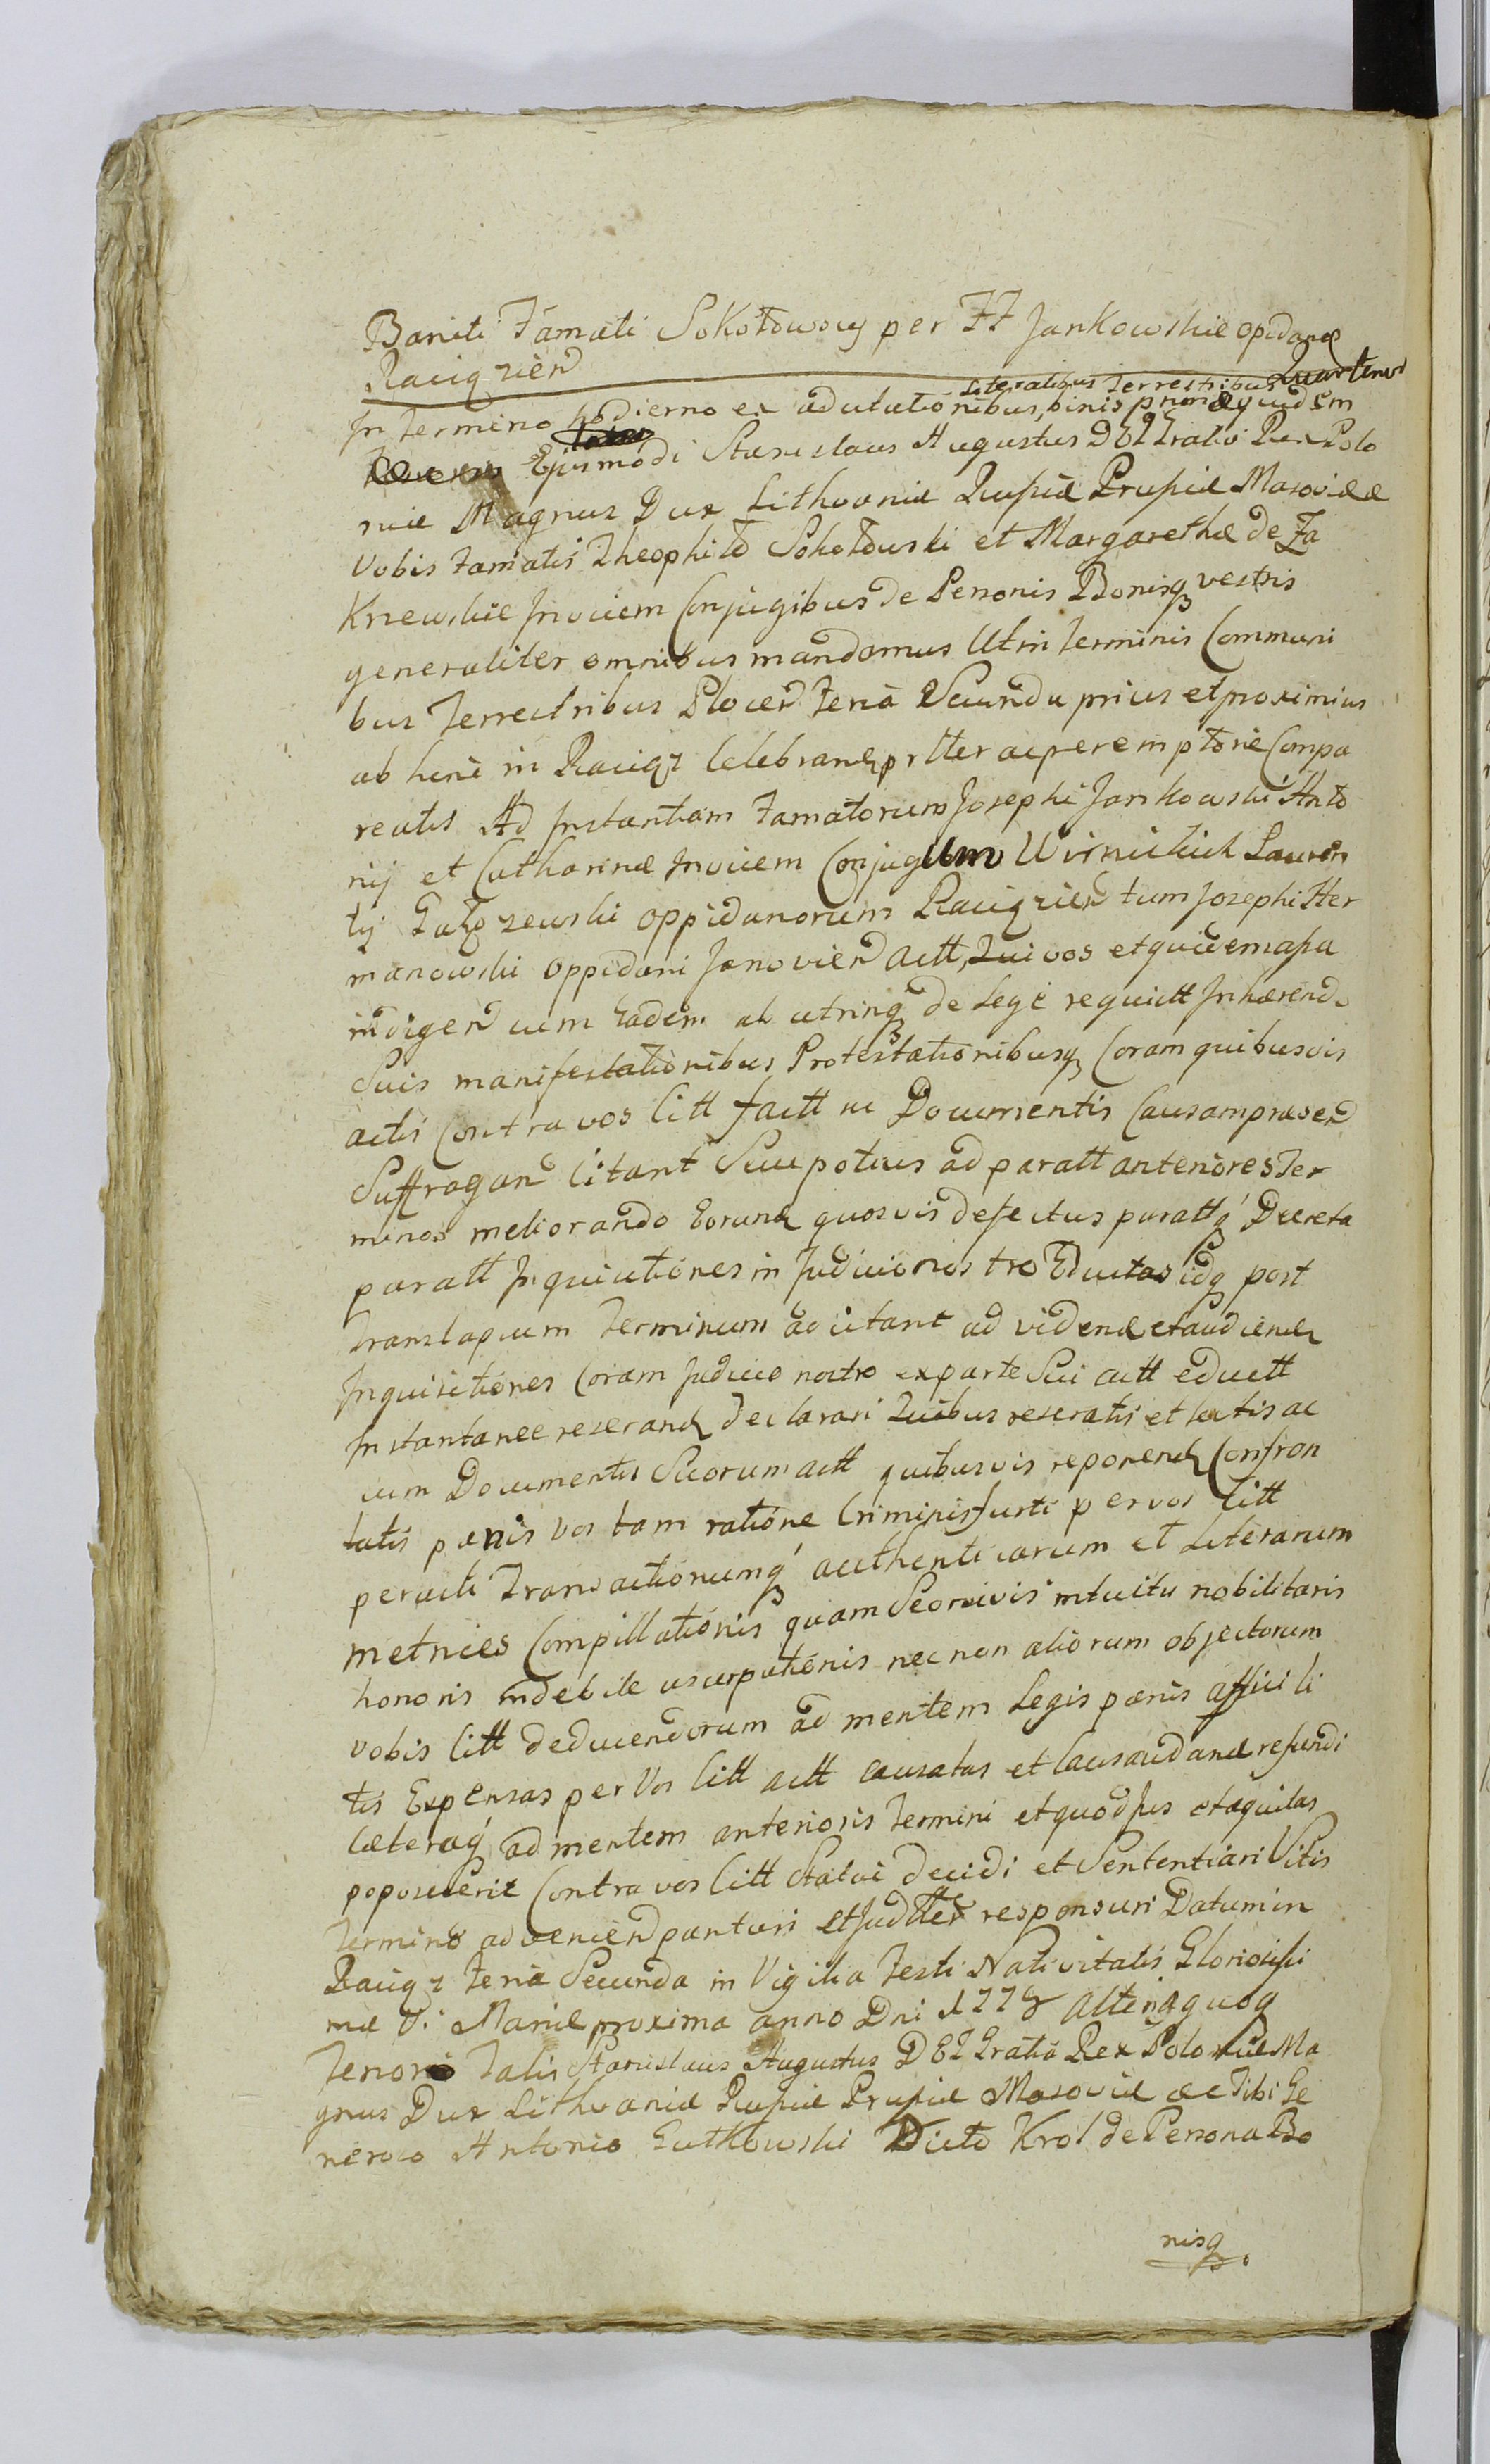 Baniti Famati Sokołowscy per FF Jankowskie opidanos
Raciązien
Literalibus Terrestribus
In Termino hodierno ex adcitationibus, binis primæquidem
Ejusmodi Stanislaus Augustus DEI Gratia Rex Polo
niæ Magnus Dux Lithvaniæ Russiæ Prussiæ Masoviæ &
Vobis Famatis Theophilo Sokołowski et Margarethæ de Za
Kriewskie Invicem Conjugibus de Personis Bonisq vestris
generaliter omnibus mandamus Ut in Terminis Communi
bus Terrestribus Plocen Feria Secunda prius et proximius
ab hinc in Raciąz Celebrand prtter ac peremptorie Compa
reatis Ad Instantiam Famatorum Josephi Jankowski Anto
nij et Catharinæ Invicem Conjugum Wirnickich Lauren
tij Gałązewski oppidanorum Raciązien tum Josephi Her
manowski oppidani Janovien actt, Qui vos et quidem assu
indigen cum Eadem ab utrinq de Lege requictt Inhærendo
Suis manifestationibus Protestationibusq Coram quibusvis
actis Contra vos Citt factt ac Documentis Causam præsen
Suffragan Citant Seu potius ad paratt anteriores Ter
minos meliorando Eorund quosvis defectus parattq Decreta
paratt Inquisitiones in Judicio nostro Eductas idq post
translapsum Terminum adcitant ad vidend et audiend
Inquisitiones Coram Judicio nostro ex parte Sui actt eductt
Instantanee reserand declarari Quibus reseratis et lectis ac
cum Documentis Suorum actt quibusvis reponend Confron
tatis pænis Vos tam ratione Criminis furti per vos Citt
peracti Transactionumq authenticarum et Literarum
metrices Compillationis quam Seorsivis intuitu nobilitaris
honoris indebite usurpationis nec non aliorum objectorum
vobis Citt deducendorum ad mentem Legis pænis affici li
tis Expensas per Vos Citt actt causatas et Causandand refundi
Cæteraq ad mentem anterioris Termini et quod Jus et æquitas
poposcerit Contra vos Citt Statui decidi et Sententiari Sitis
Termino advenien parituri et Judtter responsuri Datum in
Raciąz Feria Secunda in Vigilia Festi Nativitatis Gloriosissi
mæ V. Mariæ proxima anno Dni 1778 Alteriq quoq
Tenoris Talis Stanislaus Augustus DEI Gratia Rex Poloniæ Ma
gnus Dux Lithvaniæ Russiæ Prussiæ Masoviæ &c Tibi Ge
neroso Antonio Gutkowski Dicto Krol de Persona Bo
nisq